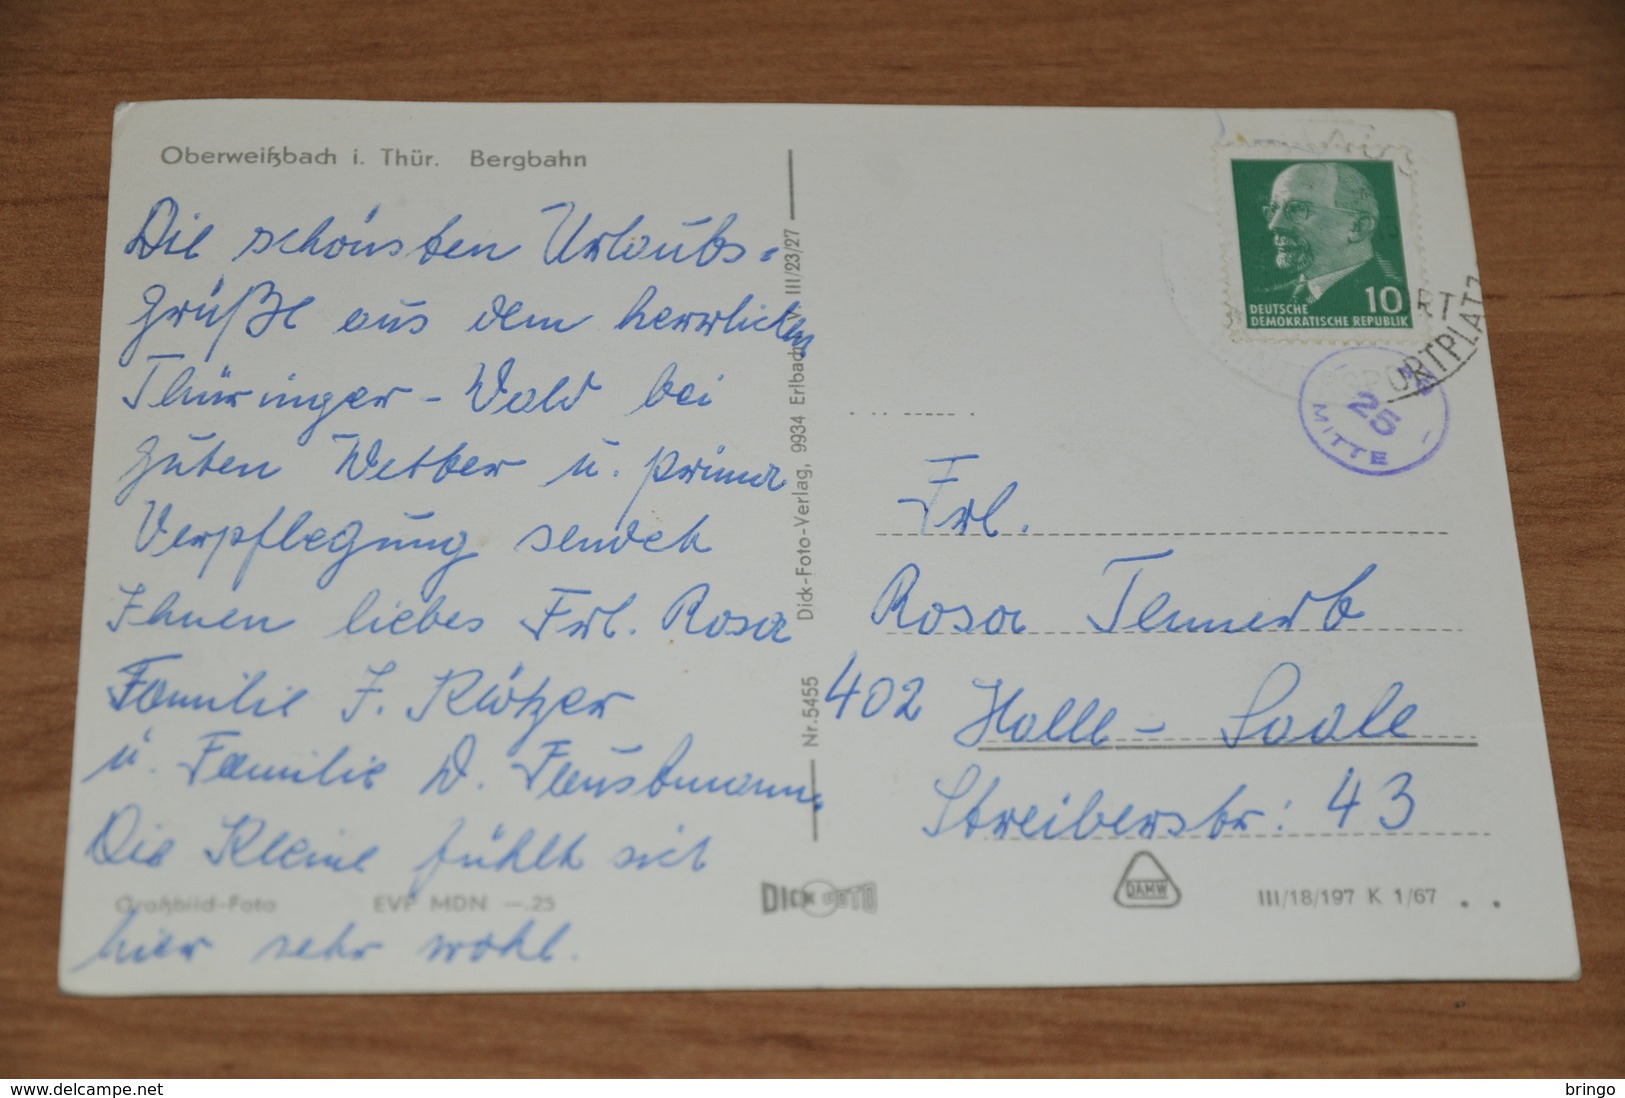 Oberweißbach i. Thür. Bergbahn
Die schönsten Urlaubs-
grüße aus dem herrlichen
Thüringer-Wald bei
guten Wetter u. prima
Verpflegung senden
Ihnen liebes Frl. Rosa
Familie J. Klötzer
u. Familie W. Faustmann.
Die Kleine fühlt sich
hier sehr wohl.
Großbild-Foto EVP MDN —.25
Nr. 5455 Dick-Foto-Verlag, 9934 Erlbach V. III/23/27
DICK FOTO
10
DEUTSCHE
DEMOKRATISCHE REPUBLIK
SPORTPLATZ
25
MITTE
Frl.
Rosa
402 Halle - Saale
Streiberstr: 43
DAMW
III/18/197 K 1/67
www.delcampe.net
bringo